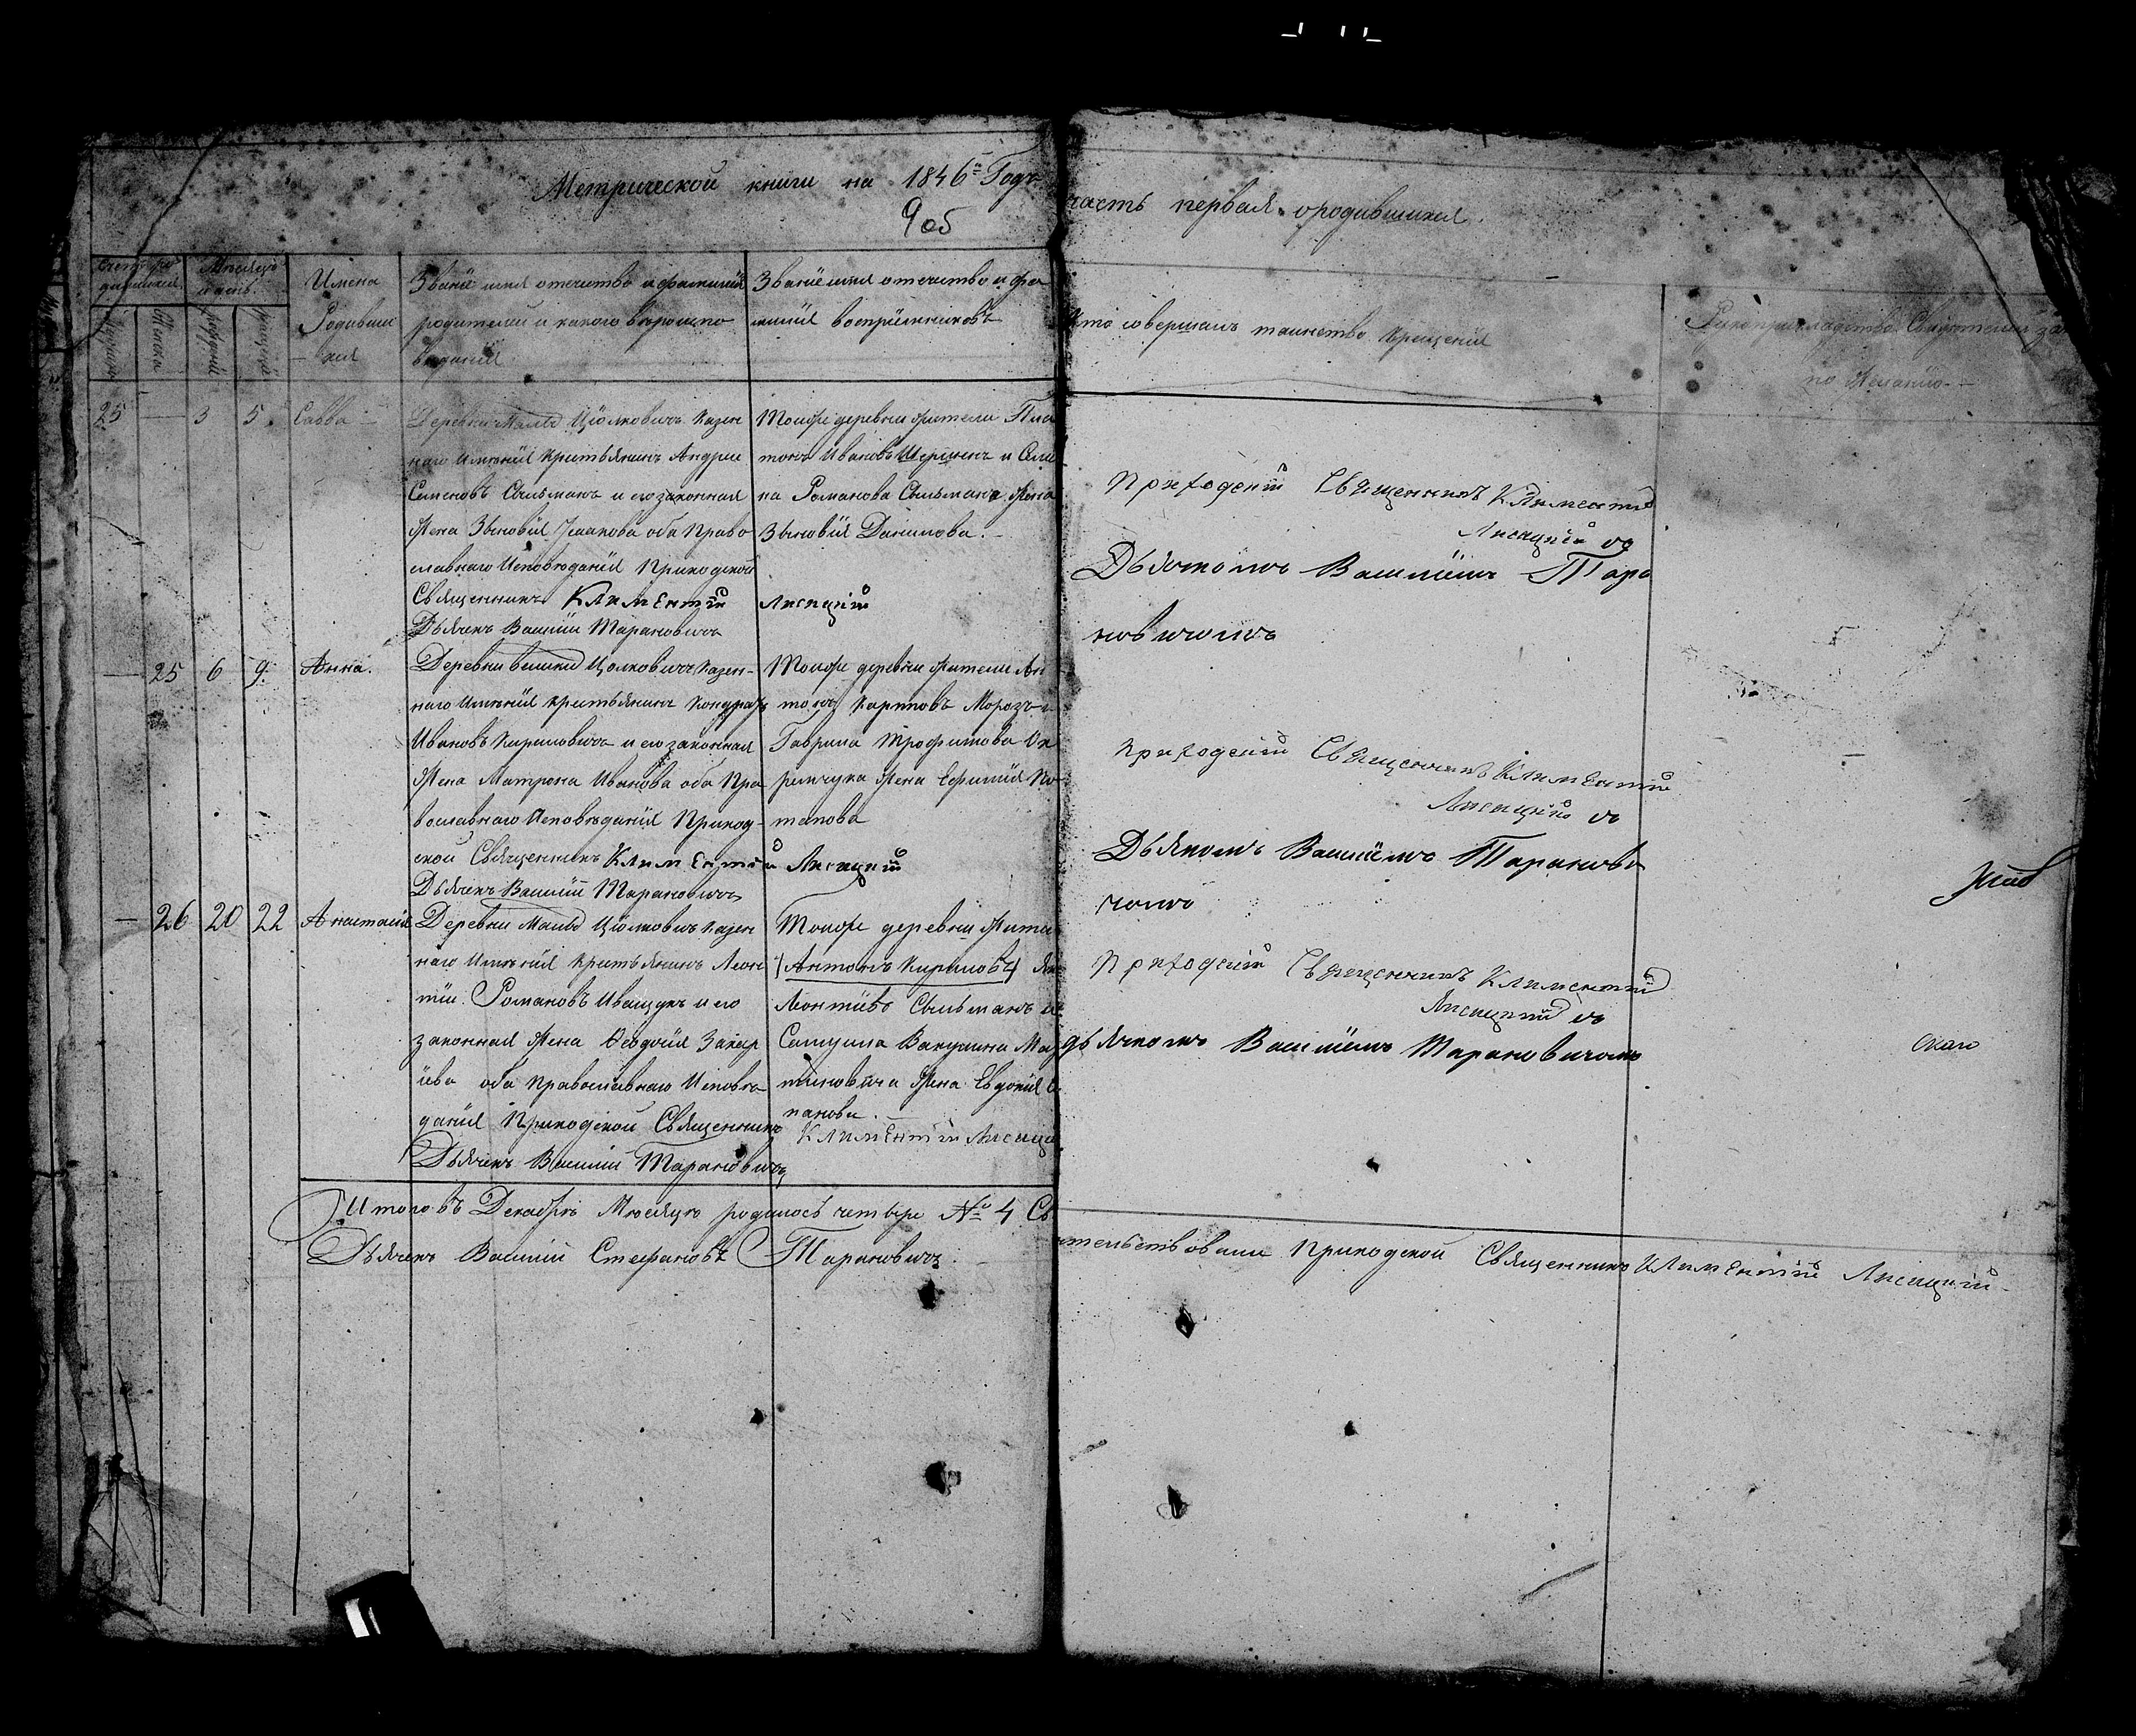 Метрической книги на 1846й Годъ
часть первая о родившихся.
9 об
Мѣсяцъ
и день.
Имена
Родивши
хся
Званіе имя отечество и фамилія
родителей и какого вѣроиспо
веданія
Званіе имя отечество и фа
милія воспріемниковъ
Кто совершалъ таинство крещенія
Рукоприкладство Свидетелей за
по желанію
25 — 3 5 Савва —
Деревни Малы Ціолковичъ казен
наго имѣнія крестьянинъ Андрие
Семеновъ Сыльманъ и его законная
жена Зыновія Исаакова оба Право
славнаго Исповѣданія Приходской
Священникъ Климентій Лисицкій
Дьячекъ Василій Тарановичъ
Тойже деревни жители Пла
тонъ Ивановъ Шершенъ и Сели
на Романова Сыльмана жена
Зыновія Данилова.
Приходскій Священникъ Климентій
Лисицкій съ
Дьячкомъ Василіемъ Тара
новичомъ
— 25 6 9 Анна.
Деревни велики Цолковичъ казен-
наго имѣнія крестьянинъ Кондратъ
Ивановъ Кириловичъ и его законная
жена Матрона Иванова оба Пра
вославнаго Исповѣданія Приход-
ской Священникъ Климентій Лисицкій
Дьячекъ Василій Тарановичъ
Тойже деревни жители Ан
тонъ Карповъ Морозъ и
Гаврила Трофимова Ок
рипчука жена Ефимія По
тапова
Приходскій Священникъ Климентій
Лисицкій съ
Дьякомъ Василіемъ Таранови
чомъ
— 26 20 22 Анастасія
Деревни Малы Ціолковичъ казен
наго имѣнія крестьянинъ Леон
тіи Романовъ Иващукъ и его
законная жена Феодосія Захар
іева оба православнаго Исповѣ
данія Приходской Священникъ
Дьячекъ Василій Тарановичъ
Тойже деревни жители
(Антонъ Кириловъ)
Леонтіевъ Сыльманъ и
Самуила Вакулина Мар
тиновича жена Евдокія С
панова.
Климентій Лисицкій
Приходскій Священникъ Климентій
Лисицкій съ
дьячкомъ Василіемъ Тарановичомъ
скаго
Итого въ Декабрѣ Мѣсяцѣ родилось четверо № 4 Сви
детельствовали Приходской Священникъ Климентій Лисицкій
Дьячекъ Василій Стефановъ Тарановичъ